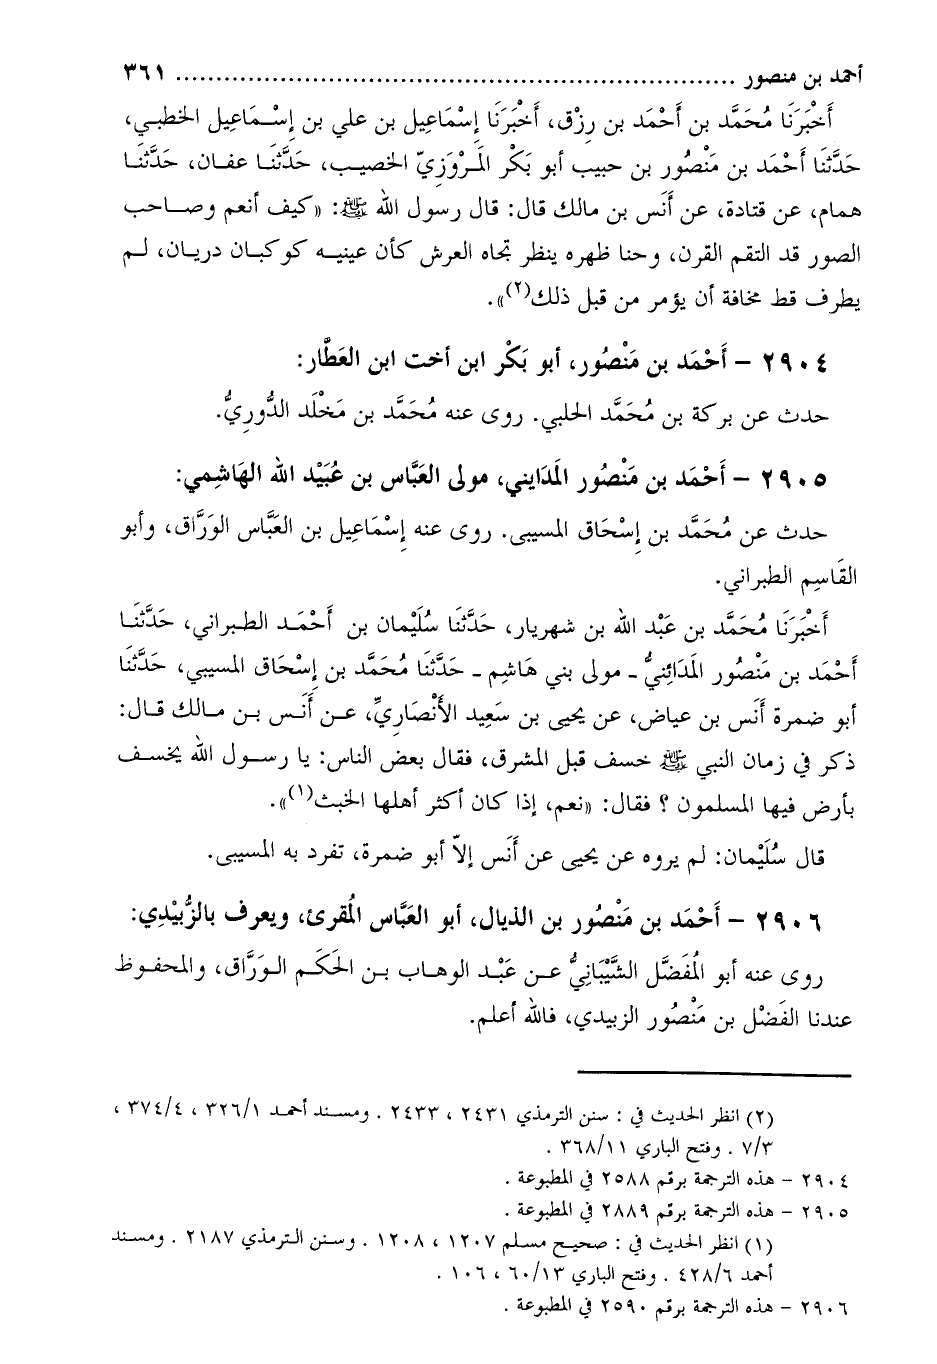 أحمد بن منصور ...................................................................... ٣٦١
أَخْبَرَنَا مُحَمَّد بن أَحْمَد بن رِزْق، أَخْبَرَنَا إِسْمَاعِيل بن علي بن إِسْـمَاعِيل الخطبي،
حَدَّثَنَا أَحْمَد بن مَنْصُور بن حبيب أبو بَكْر المَرْوَزِيّ الخصيب، حَدَّثَنَـا عفان، حَدَّثَنَـا
همام، عن قتادة، عن أَنَس بن مالك قال: قال رسول الله ﷺ: «كيف أنعم وصـاحب
الصور قد التقم القرن، وحنا ظهره ينظر تجاه العرش كأن عينيـه كوكبـان دريان، لـم
يطرف قط مخافة أن يؤمر من قبل ذلك(٢)».
٢٩٠٤ – أَحْمَد بن مَنْصُور، أبو بَكْر ابن أخت ابن العَطَّار:
حدث عن بركة بن مُحَمَّد الحلبي. روى عنه مُحَمَّد بن مَخْلَد الدُّورِيُّ.
٢٩٠٥ – أَحْمَد بن مَنْصُور المَدَايني، مولى العَبَّاس بن عُبَيْد الله الهَاشِمي:
حدث عن مُحَمَّد بن إِسْحَاق المسيبى. روى عنه إِسْمَاعِيل بن العَبَّاس الوَرَّاق، وأبو
القَاسِم الطبراني.
أَخْبَرَنَا مُحَمَّد بن عَبْد الله بن شهريار، حَدَّثَنَا سُلَيْمان بن أَحْمَـد الطـبراني، حَدَّثَنَـا
أَحْمَد بن مَنْصُور المَدَائِنيُّ ـ مولى بني هَاشِم ـ حَدَّثَنَا مُحَمَّد بن إِسْحَاق المسيبي، حَدَّثَنَا
أبو ضمرة أَنَس بن عياض، عن يحيى بن سَعِيد الأَنْصَارِيِّ، عـن أَنَـس بـن مـالك قـال:
ذكر في زمان النبي ﷺ خسف قبل المشرق، فقال بعض الناس: يا رسـول الله يخسـف
بأرض فيها المسلمون ؟ فقال: «نعم، إذا كان أكثر أهلها الخبث(١)».
قال سُلَيْمان: لم يروه عن يحيى عن أَنَس إلاّ أبو ضمرة، تفرد به المسيبى.
٢٩٠٦ – أَحْمَد بن مَنْصُور بن الذيال، أبو العَبَّاس المُقرئ، ويعرف بالزُّبَيْدِي:
روى عنه أبو المُفَضَّل الشَّيْبَانِيُّ عـن عَبْـد الوهاب بـن الحَكَـم الـوَرَّاق، والمحفـوظ
عندنا الفَضْل بن مَنْصُور الزبيدي، فالله أعلم.
(٢) انظر الحديث في : سنن الترمذي ٢٤٣١ ، ٢٤٣٣ . ومسـند أحمـد ٣٢٦/١ ، ٣٧٤/٤ ،
٧/٣ . وفتح الباري ٣٦٨/١١ .
٢٩٠٤ – هذه الترجمة برقم ٢٥٨٨ في المطبوعة .
٢٩٠٥ – هذه الترجمة برقم ٢٨٨٩ في المطبوعة .
(١) انظر الحديث في : صحيـح مسـلم ١٢٠٧ ، ١٢٠٨ . وسـنن الـترمذي ٢١٨٧ . ومسـند
أحمد ٤٢٨/٦ . وفتح الباري ٦٠/١٣ ، ١٠٦ .
٢٩٠٦ – هذه الترجمة برقم ٢٥٩٠ في المطبوعة .